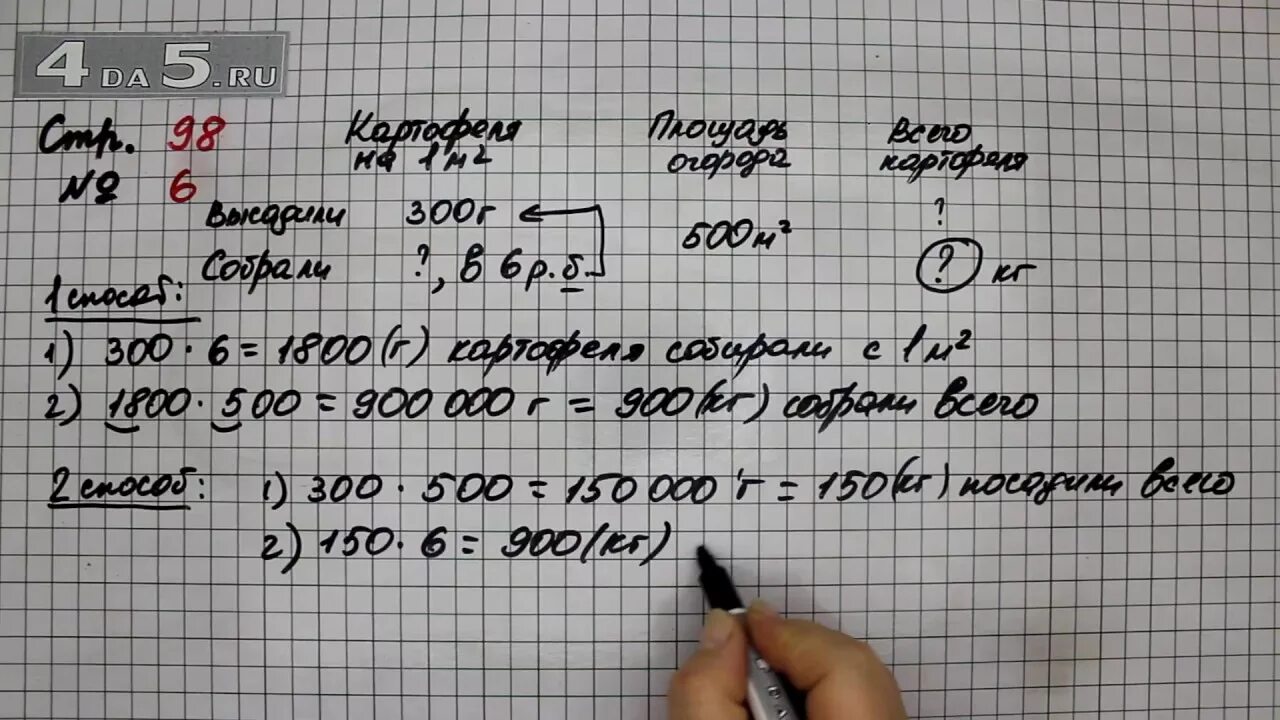 4DA5.RU
Стр. 98
№ 6
Картофеля на 1 м²
Площадь огорода
Всего картофеля
Высадили 300 г
500 м²
?
Собрали ?, в 6 р. б.
? кг
1 способ:
1) 300 · 6 = 1800 (г) картофеля собирали с 1 м²
2) 1800 · 500 = 900 000 г = 900 (кг) собрали всего
2 способ: 1) 300 · 500 = 150 000 г = 150 (кг) посадили всего
2) 150 · 6 = 900 (кг)